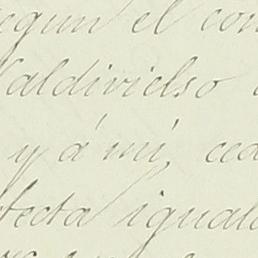 egun el con
Valdivielso
y á mí, ced
fecta iguald